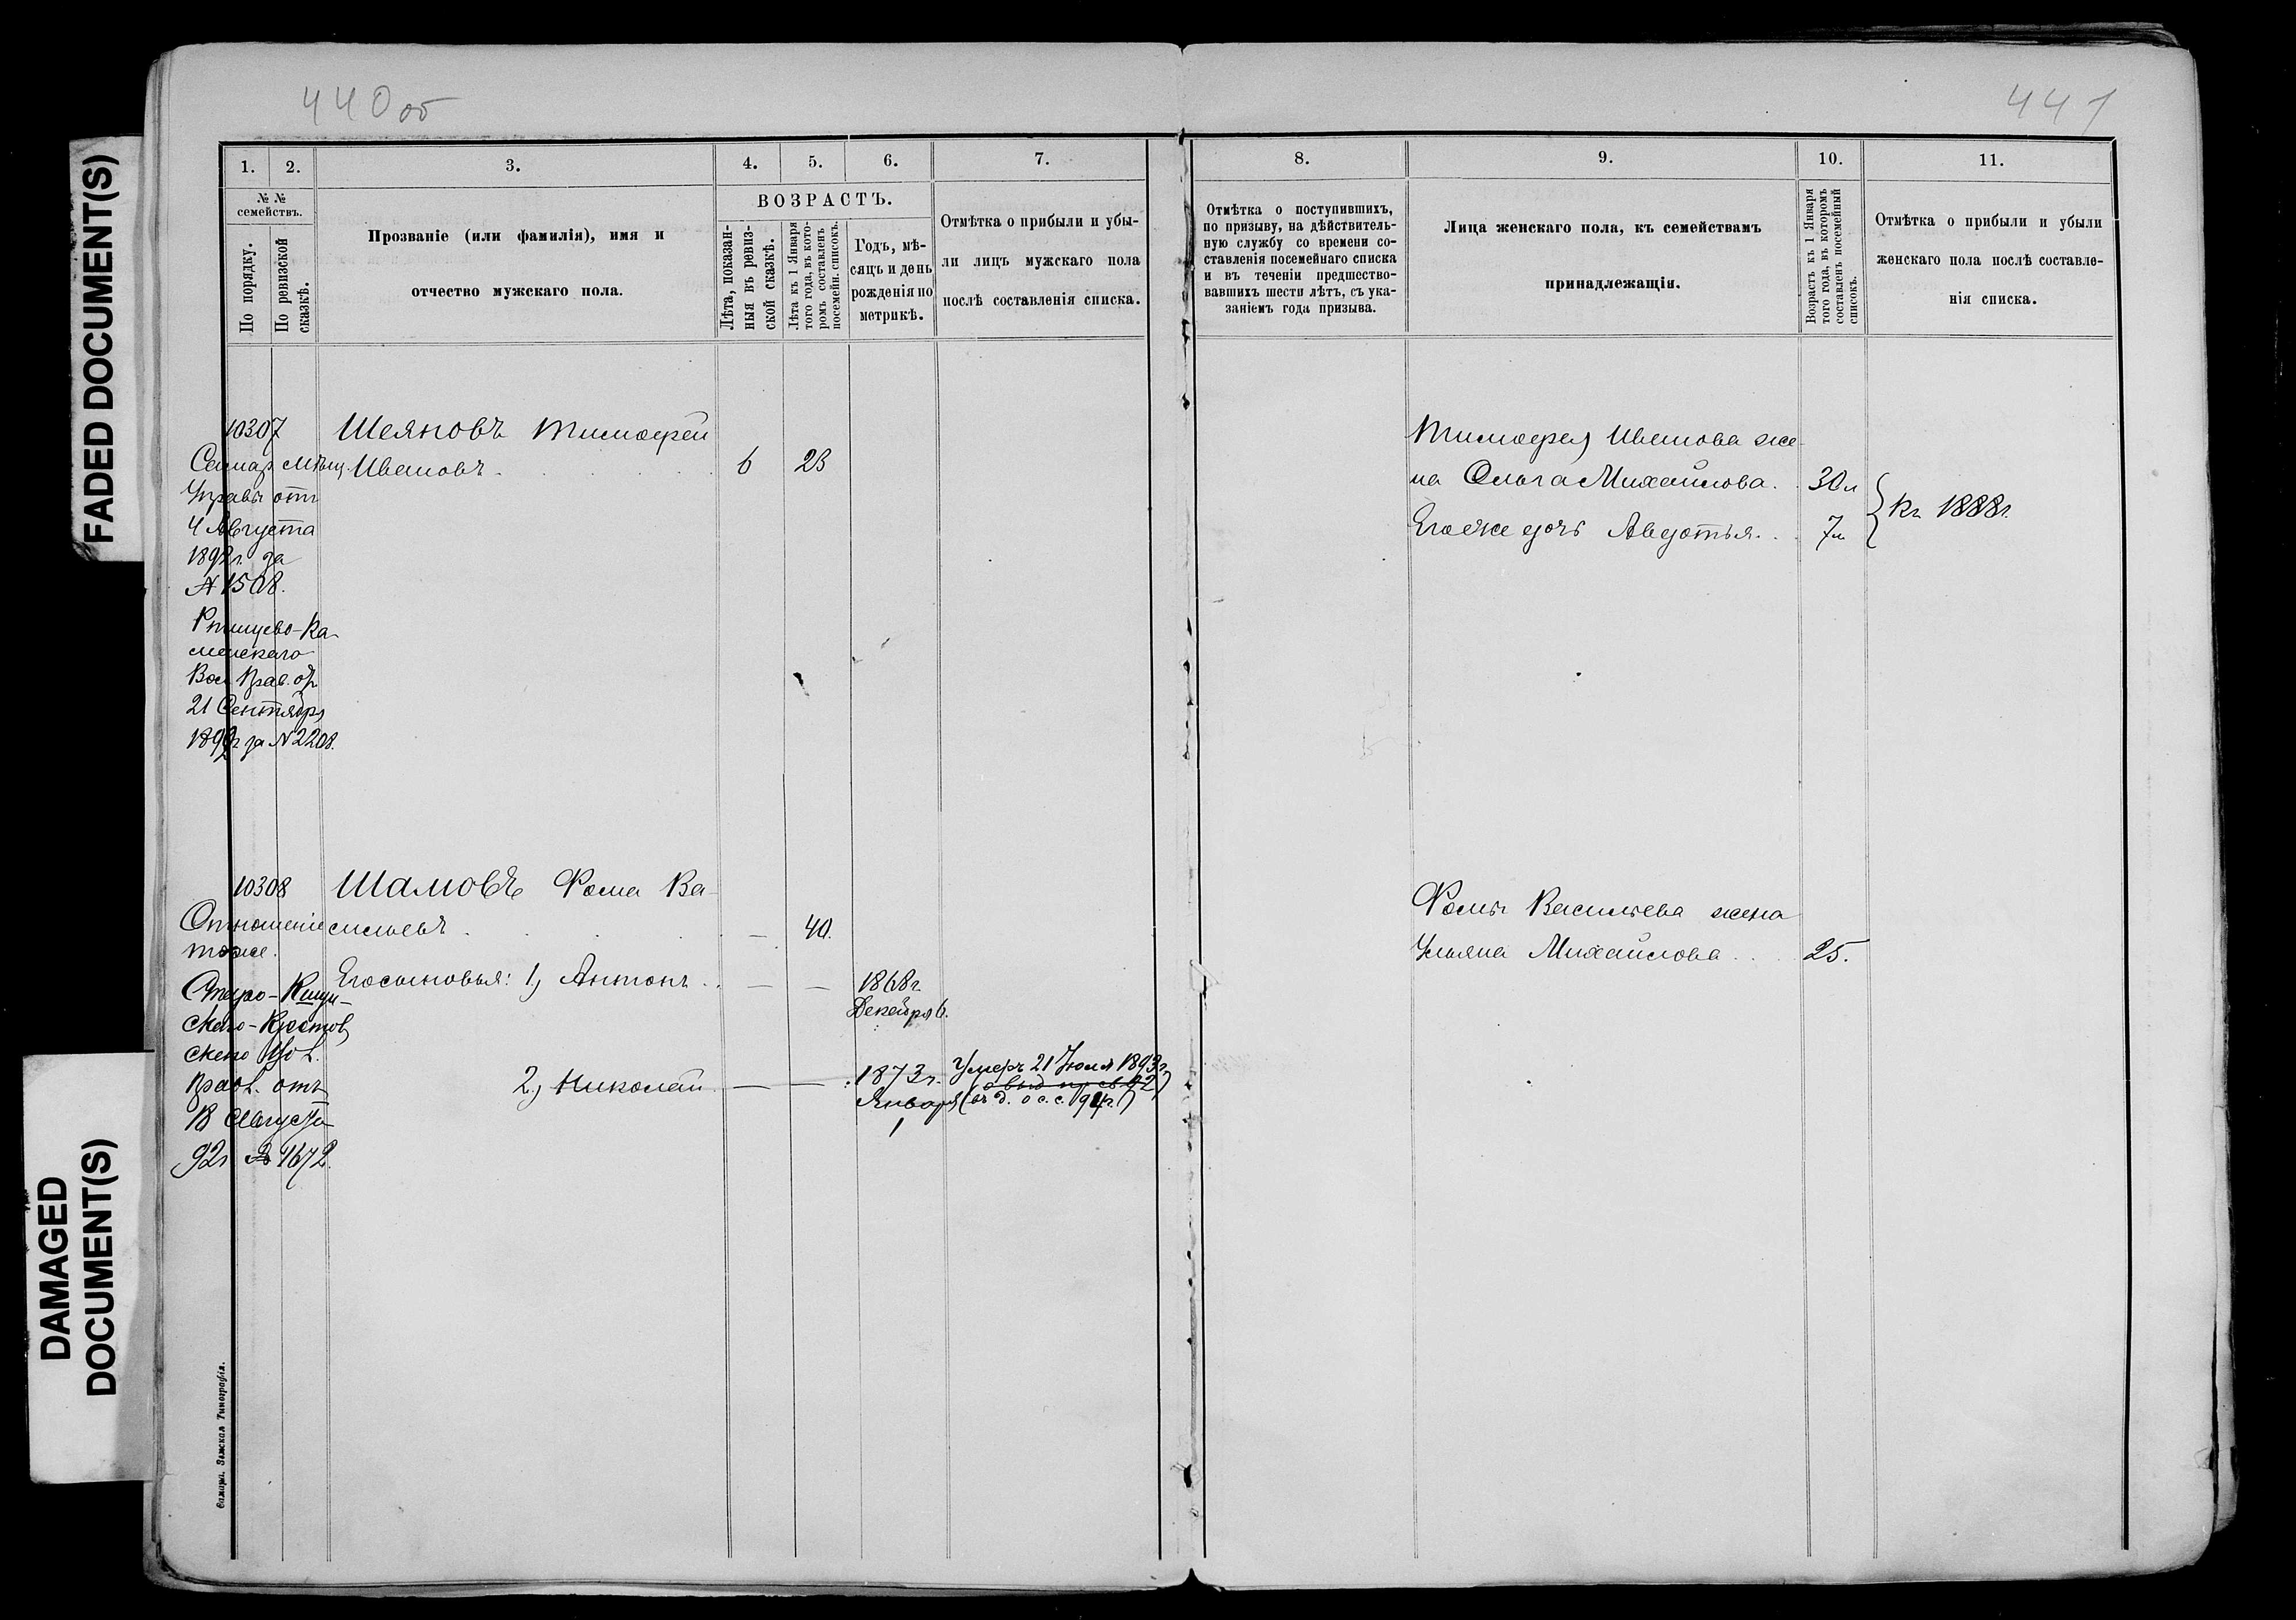 FADED DOCUMENT(S)
DAMAGED
DOCUMENT(S)
440 об
1.
2.
3.
4.
5.
6.
7.
№ №
семействъ.
По порядку.
По ревизской
сказкѣ.
Прозваніе (или фамилія), имя и
отчество мужскаго пола.
ВОЗРАСТЪ.
Лѣта, показан-
ныя въ ревиз-
ской сказкѣ.
Лѣта къ 1 Января
того года, въ кото-
ромъ составленъ
посемейн. списокъ.
Годъ, мѣ-
сяцъ и день
рожденія по
метрикѣ.
Отмѣтка о прибыли и убы-
ли лицъ мужскаго пола
послѣ составленія списка.
10307
Самар мѣщ.
Управы отъ
4 Августа
1892г. за
№ 1508.
Ртищево-Ка-
менскаго
Вол. Прав. от
21 Сентября
1892г за №2208.
Шеяновъ Тимофей
Ивановъ. 6 23
10308
Отношеніе
тоже.
скаго
Правл. отъ
18 Августа
92г № 1672.
Шамовъ Фома Ва-
сильевъ . — 40.
Его сыновья: 1, Антонъ . — — 1868г.
Декабря 6.
2, Николай — — 1873г.
Января
1
Умеръ 21 Іюля 1893г.
Самара. Земская Типографія.
441
8.
9.
10.
11.
Отмѣтка о поступившихъ,
по призыву, на дѣйствитель-
ную службу со времени со-
ставленія посемейнаго списка
и въ теченіи предшество-
вавшихъ шести лѣтъ, съ ука-
заніемъ года призыва.
Лица женскаго пола, къ семействамъ
принадлежащія.
Возрастъ къ 1 Января
того года, въ которомъ
составленъ посемейный
списокъ.
Отмѣтка о прибыли и убыли
женскаго пола послѣ составле-
нія списка.
Тимофея Иванова же-
на Ольга Михайлова . 30л
Его же дочь Авдотья . . 7л
къ 1888г.
Фомы Васильева жена
Ульяна Михайлова . . . 25.